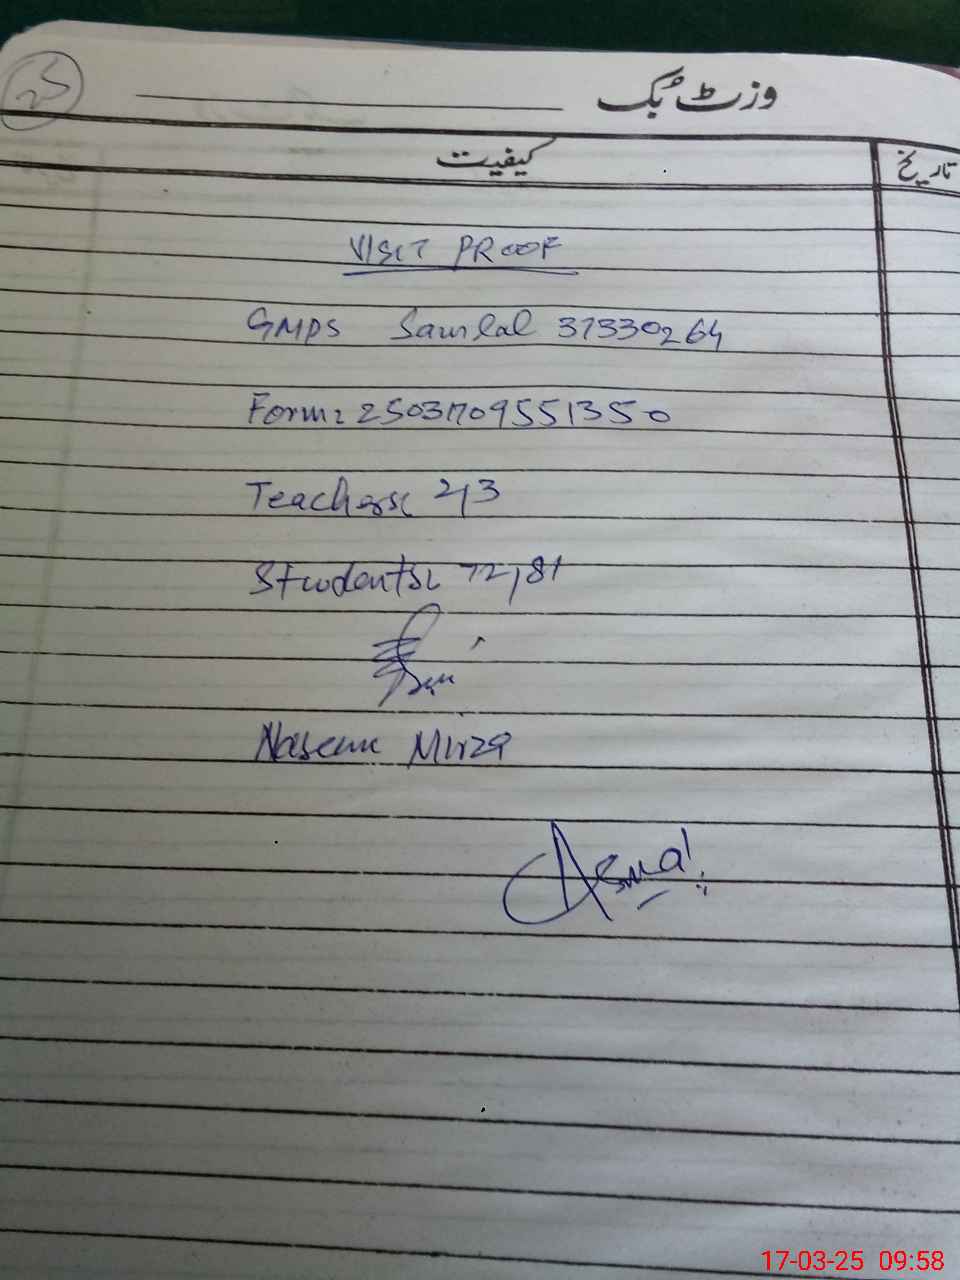 وزٹ بک
کیفیت
تاریخ
VISIT PROOF
GMPS Samlal 37330264
Form: 25031709551350
Teachers: 2,3
Students: 72,81
Naseem Mirza
Asma
17-03-25 09:58